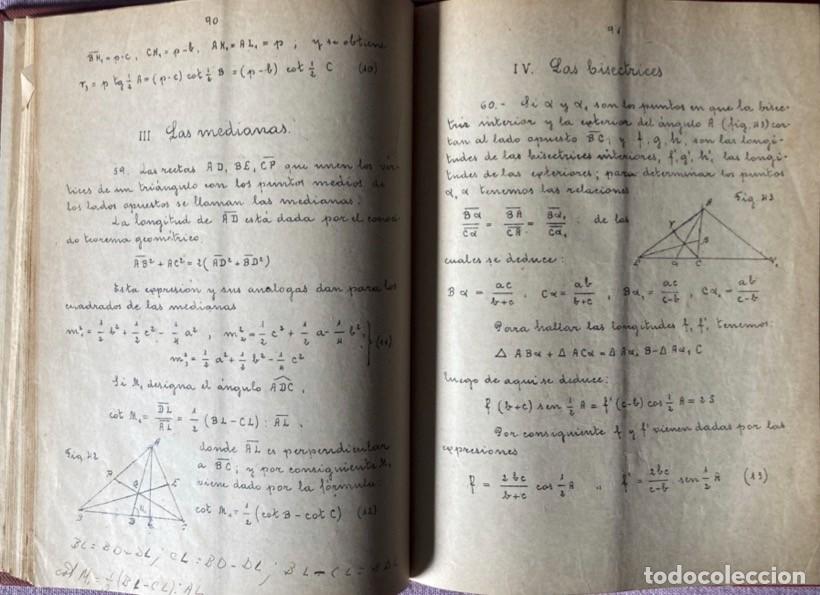 90
BH₁ = p-c, CH₁ = p-b, AH₁ = AL₁ = p ; y se obtiene
r₃ = p tg ½ A = (p-c) cot ½ B = (p-b) cot ½ C (10)
III Las medianas.
59. Las rectas AD, BE, CF que unen los vér-
tices de un triángulo con los puntos medios de
los lados opuestos se llaman las medianas.
La longitud de AD está dada por el conoci-
do teorema geométrico
AB² + AC² = 2(AD² + BD²)
Esta expresión y sus análogas dan para los
cuadrados de las medianas
m₁² = ½ b² + ½ c² - ¼ a², m₂² = ½ c² + ½ a - ¼ b²,
m₃² = ½ a² + ½ b² - ¼ c² (11)
Si M₁ designa el ángulo ADC,
cot M₁ = DL/AL = ½ (BL-CL) : AL,
Fig. 42
donde AL es perpendicular
a BC; y por consiguiente M₁
viene dado por la fórmula:
cot M₁ = ½ (cot B - cot C) (12)
BL = BD-DL; CL = BD-DL; BL-CL = 2DL
cot M₁ = ½ (BL-CL) : AL
91
IV. Las bisectrices
60.- Si α y α₁ son los puntos en que la bisec-
triz interior y la exterior del ángulo A (fig. 43) cor-
tan al lado opuesto BC; y f, g, h, son las longi-
tudes de las bisectrices interiores, f', g', h', las longi-
tudes de las exteriores; para determinar los puntos
α, α₁ tenemos las relaciones
Fig. 43
Bα/Cα = BA/CA = Bα₁/Cα₁ : de las
cuales se deduce:
Bα = ac/b+c, Cα = ab/b+c, Bα₁ = ac/c-b, Cα₁ = ab/c-b
Para hallar las longitudes f, f', tenemos.
△ ABα + △ ACα = △Aα₁B - △Aα₁C
luego de aquí se deduce:
f (b+c) sen ½ A = f' (c-b) cos ½ A = 2S
Por consiguiente f y f' vienen dadas por las
expresiones
f = 2bc/b+c cos ½ A ,, f' = 2bc/c-b sen ½ A (13)
todocoleccion